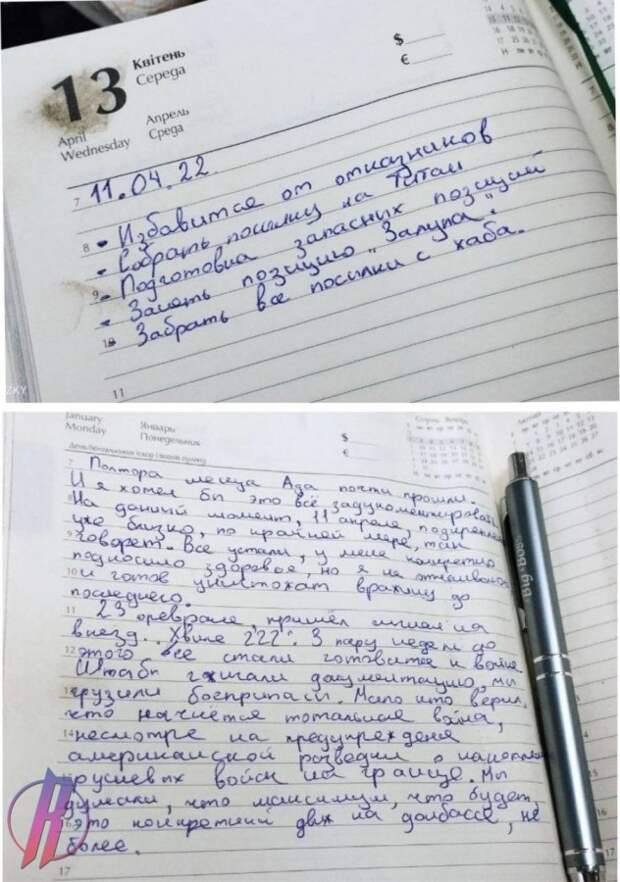 13
Квітень
Середа
April
Wednesday
Апрель
Среда
$
€
7 11.04.22
8 - Избавится от отказников
- Собрать посылку на Титан
9 - Подготовка запасных позиций
- Занять позицию "Залупа".
10 Забрать все посылки с хаба.
11
January
Monday
Январь
Понедельник
$
€
7 Полтора месяца Ада почти прошли.
И я хотел бы это всё задокументировать
8 На данный момент, 11 апреля, подкрепление
уже близко, по крайней мере, так
9 говорят. Все устали, у меня конкретно
подкосило здоровье, но я не
10 и готов уничтожат вражину до
последнего.
11 23 февраля, пришёл сигнал на
выезд. "Хвиля 222". З пару недель до
12 этого все стали готовится к войне
Штабы документацию, мы
грузили боеприпасы. Мало кто верил,
что начнётся тотальная война,
14 несмотря на предупреждения
американской розведки о накоплении
врушевых войск на границе. Мы
думали, что максимум, что будет,
это конкретный движ на донбассе, не
более.
17
Big-Boss